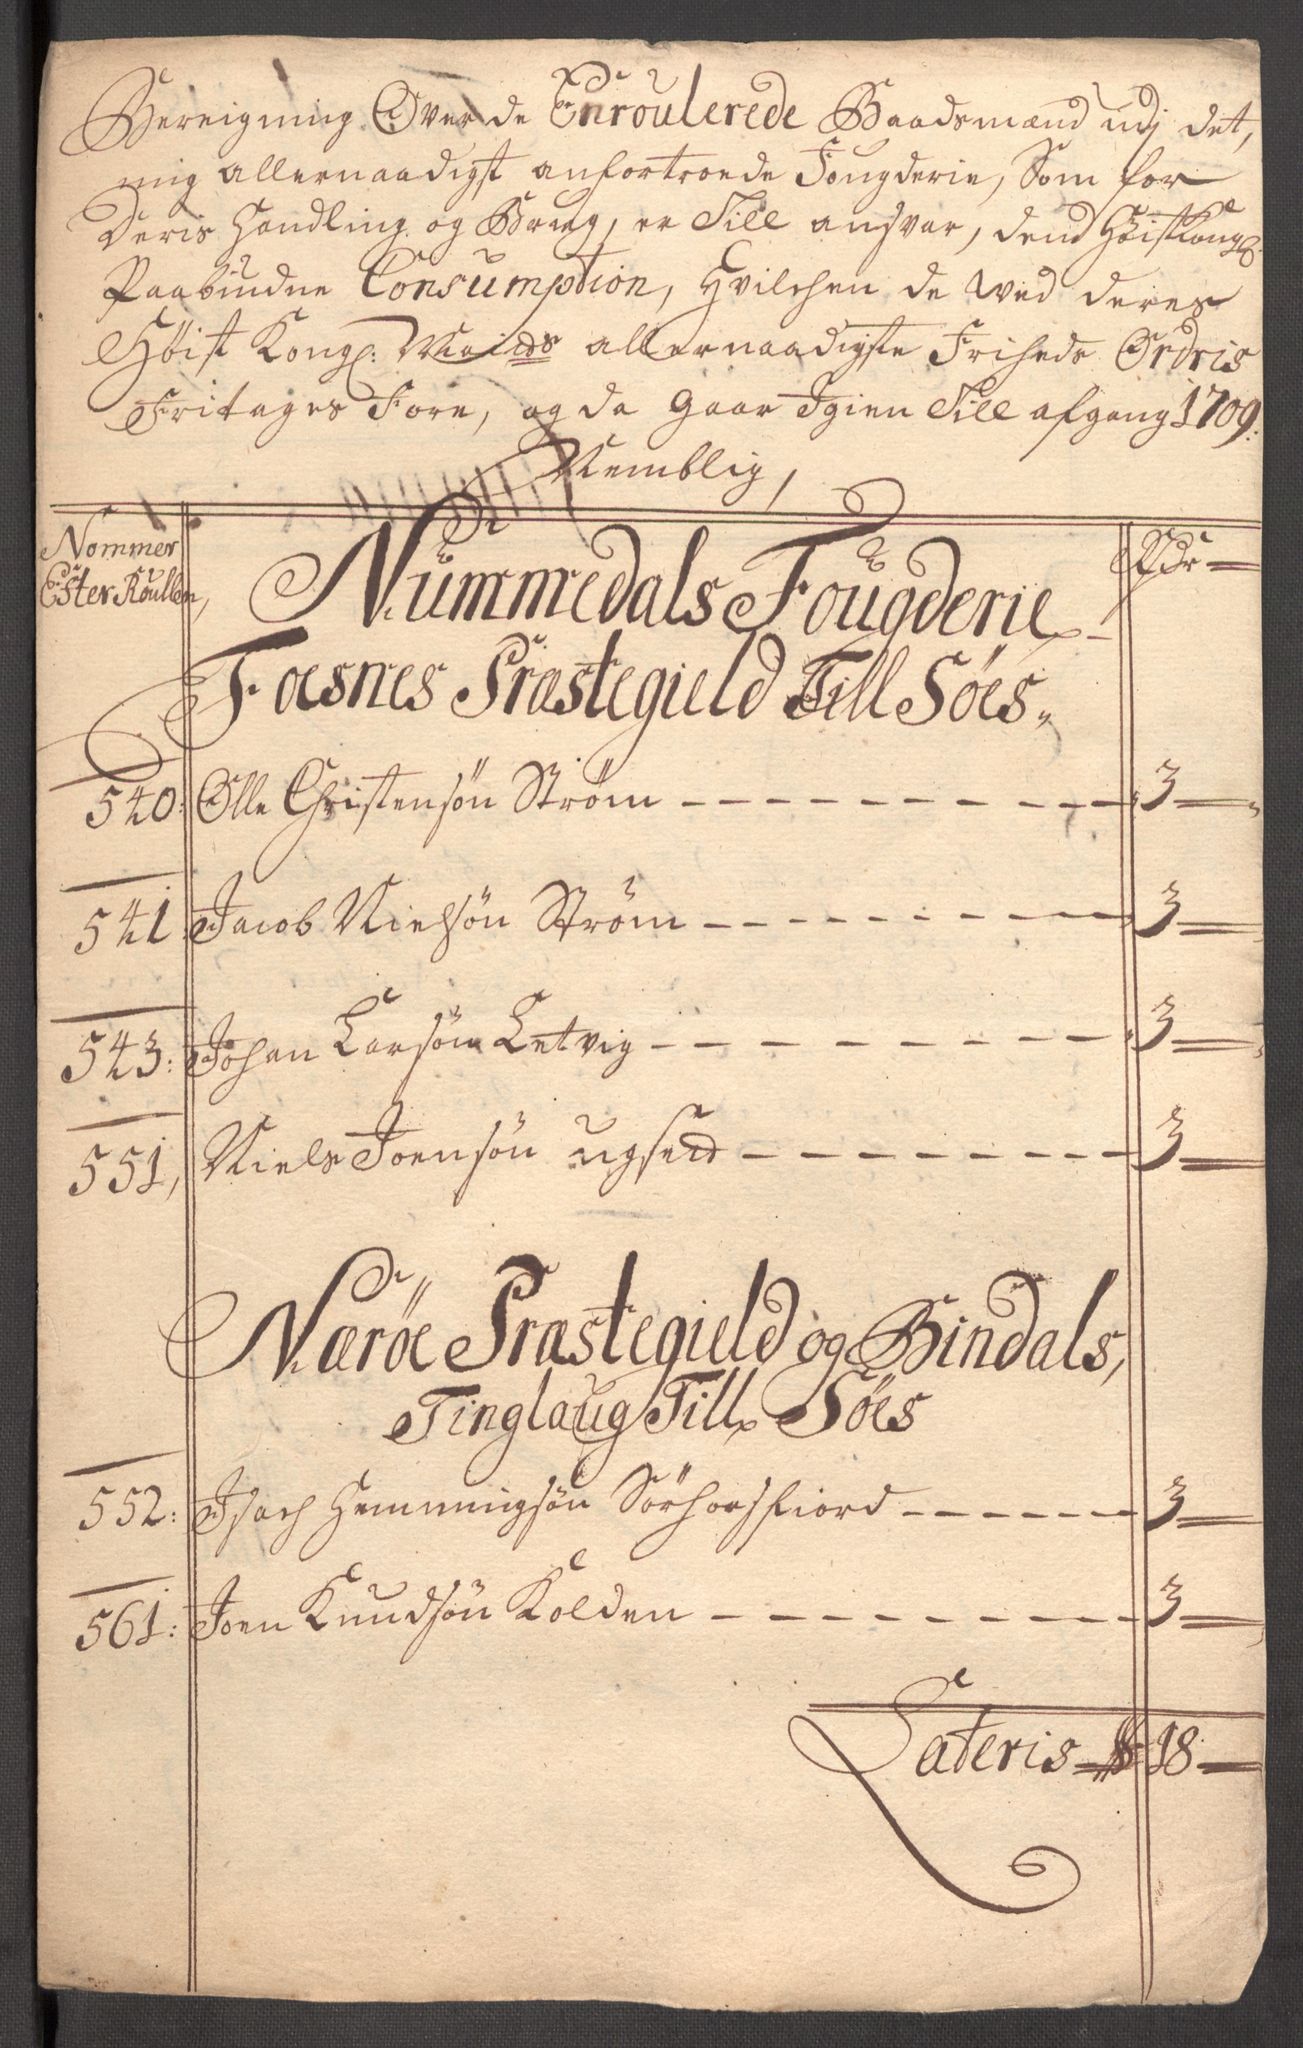 Bereigning Over de Enroulerede Baadsmænd udj det,
mig allernaadigst anfortroede Fougderie, Som for
Deris Handling og Brug, er Till ansvar, dend Høist Kongl:
Paabudne Consumption, Hvilchen de wed deres
Høist Kongl: Mayts allernaadigste Friheds Ordris
Fritages Fore, og da gaar Igien Till afgang 1709:
Nemblig,
Nommer
Efter Roullen,
Nummedals Fougderie
Rdr
Foesnes Præstegield Till Søes
540: Olle Christensøn Strøm 3
541 Jacob Nielsøn Strøm 3
543: Johan Larsøn Letvig 3
551, Niels Joensøn 3
Nærøe Præstegield og Bindals,
Tinglaug Till Søes
552: Isach Hemmingsøn Sørhorsfiord 3
561: Joen Knudsøn Kolden 3
Lateris 18